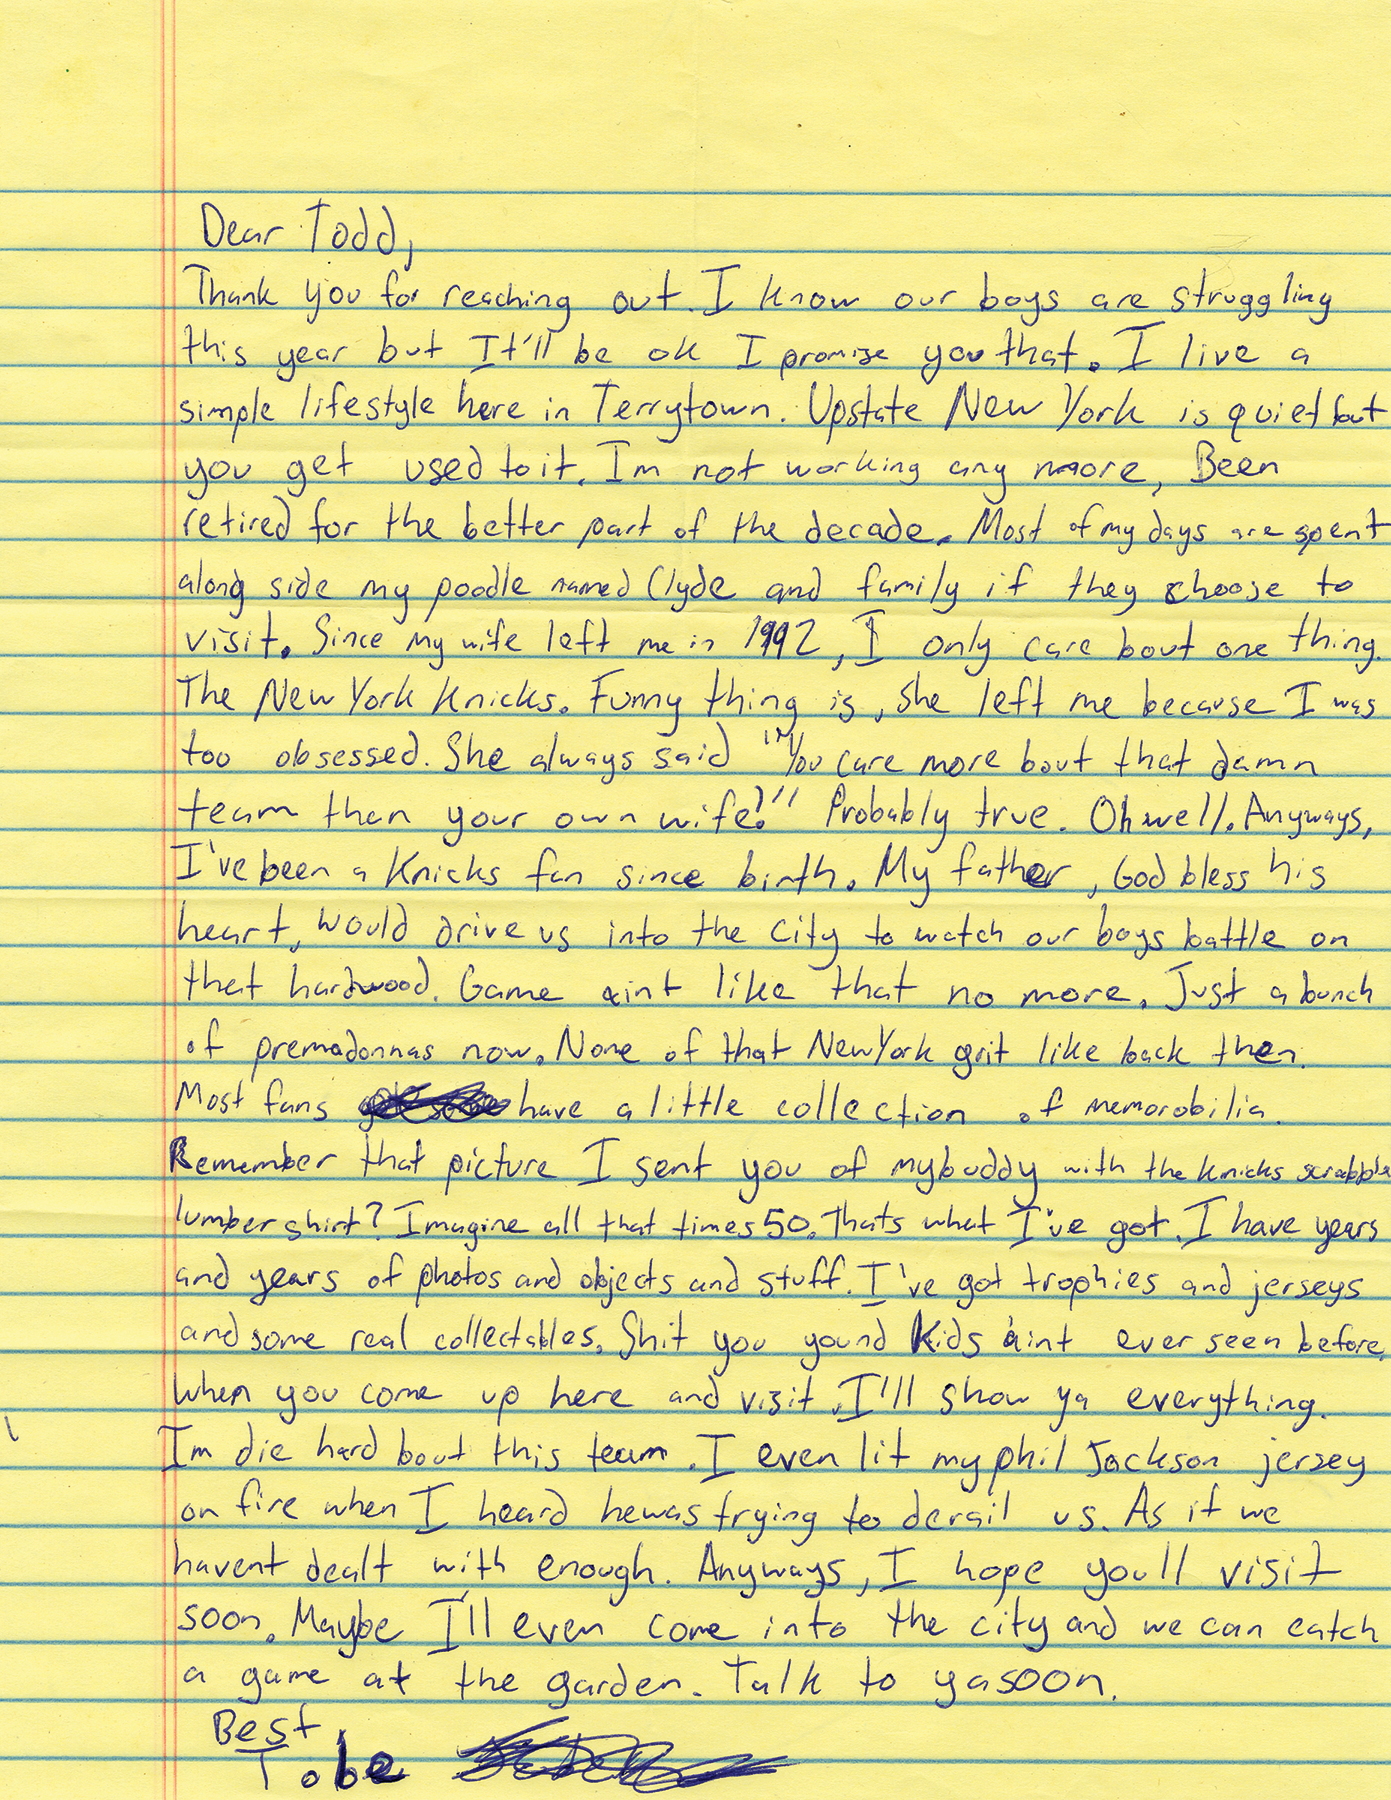 Dear Todd,
Thank you for reaching out. I know our boys are struggling
this year but It'll be ok I promise you that. I live a
simple lifestyle here in Terrytown. Upstate New York is quiet but
you get used to it. Im not working any more, Been
retired for the better part of the decade. Most of my days are spent
along side my poodle named Clyde and family if they choose to
visit. Since my wife left me in 1992, I only care bout one thing.
The New York Knicks. Funny thing is, she left me because I was
too obsessed. She always said "You care more bout that damn
team than your own wife!" Probably true. Oh well. Anyways,
I've been a Knicks fan since birth. My father, God bless his
heart, would drive us into the city to watch our boys battle on
that hardwood. Game aint like that no more. Just a bunch
of premadonnas now. None of that New York grit like back then.
Most fans have a little collection of memorobilia.
Remember that picture I sent you of my buddy with the knicks scrabble
lumber shirt? Imagine all that times 50. Thats what I've got. I have years
and years of photos and objects and stuff. I've got trophies and jerseys
and some real collectables. Shit you yound kids aint ever seen before.
When you come up here and visit, I'll show ya everything.
Im die hard bout this team. I even lit my phil Jackson jersey
on fire when I heard he was trying to derail us. As if we
havent dealt with enough. Anyways, I hope youll visit
soon. Maybe I'll even come into the city and we can catch
a game at the garden. Talk to ya soon.
Best,
Tobe